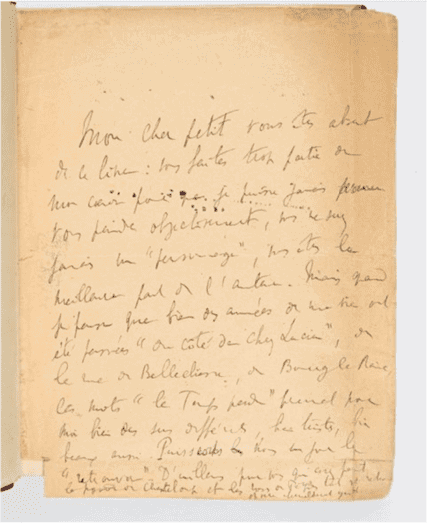 Mon cher petit vous êtes absent
de ce livre : vous faites trop partie de
mon cœur pour que je puisse jamais
vous peindre objectivement, vous ne serez
jamais un "personnage", vous êtes la
meilleure part de l'auteur. Mais quand
je pense que bien des années de ma vie ont
été passées "du côté de chez Lucien", de
la rue de Bellechasse, de Bourg la Reine,
les mots "le Temps perdu" prennent pour
moi bien des sens différents, bien tristes, bien
beaux aussi. Puissions nous un jour le
"retrouver". D'ailleurs pour vous qui